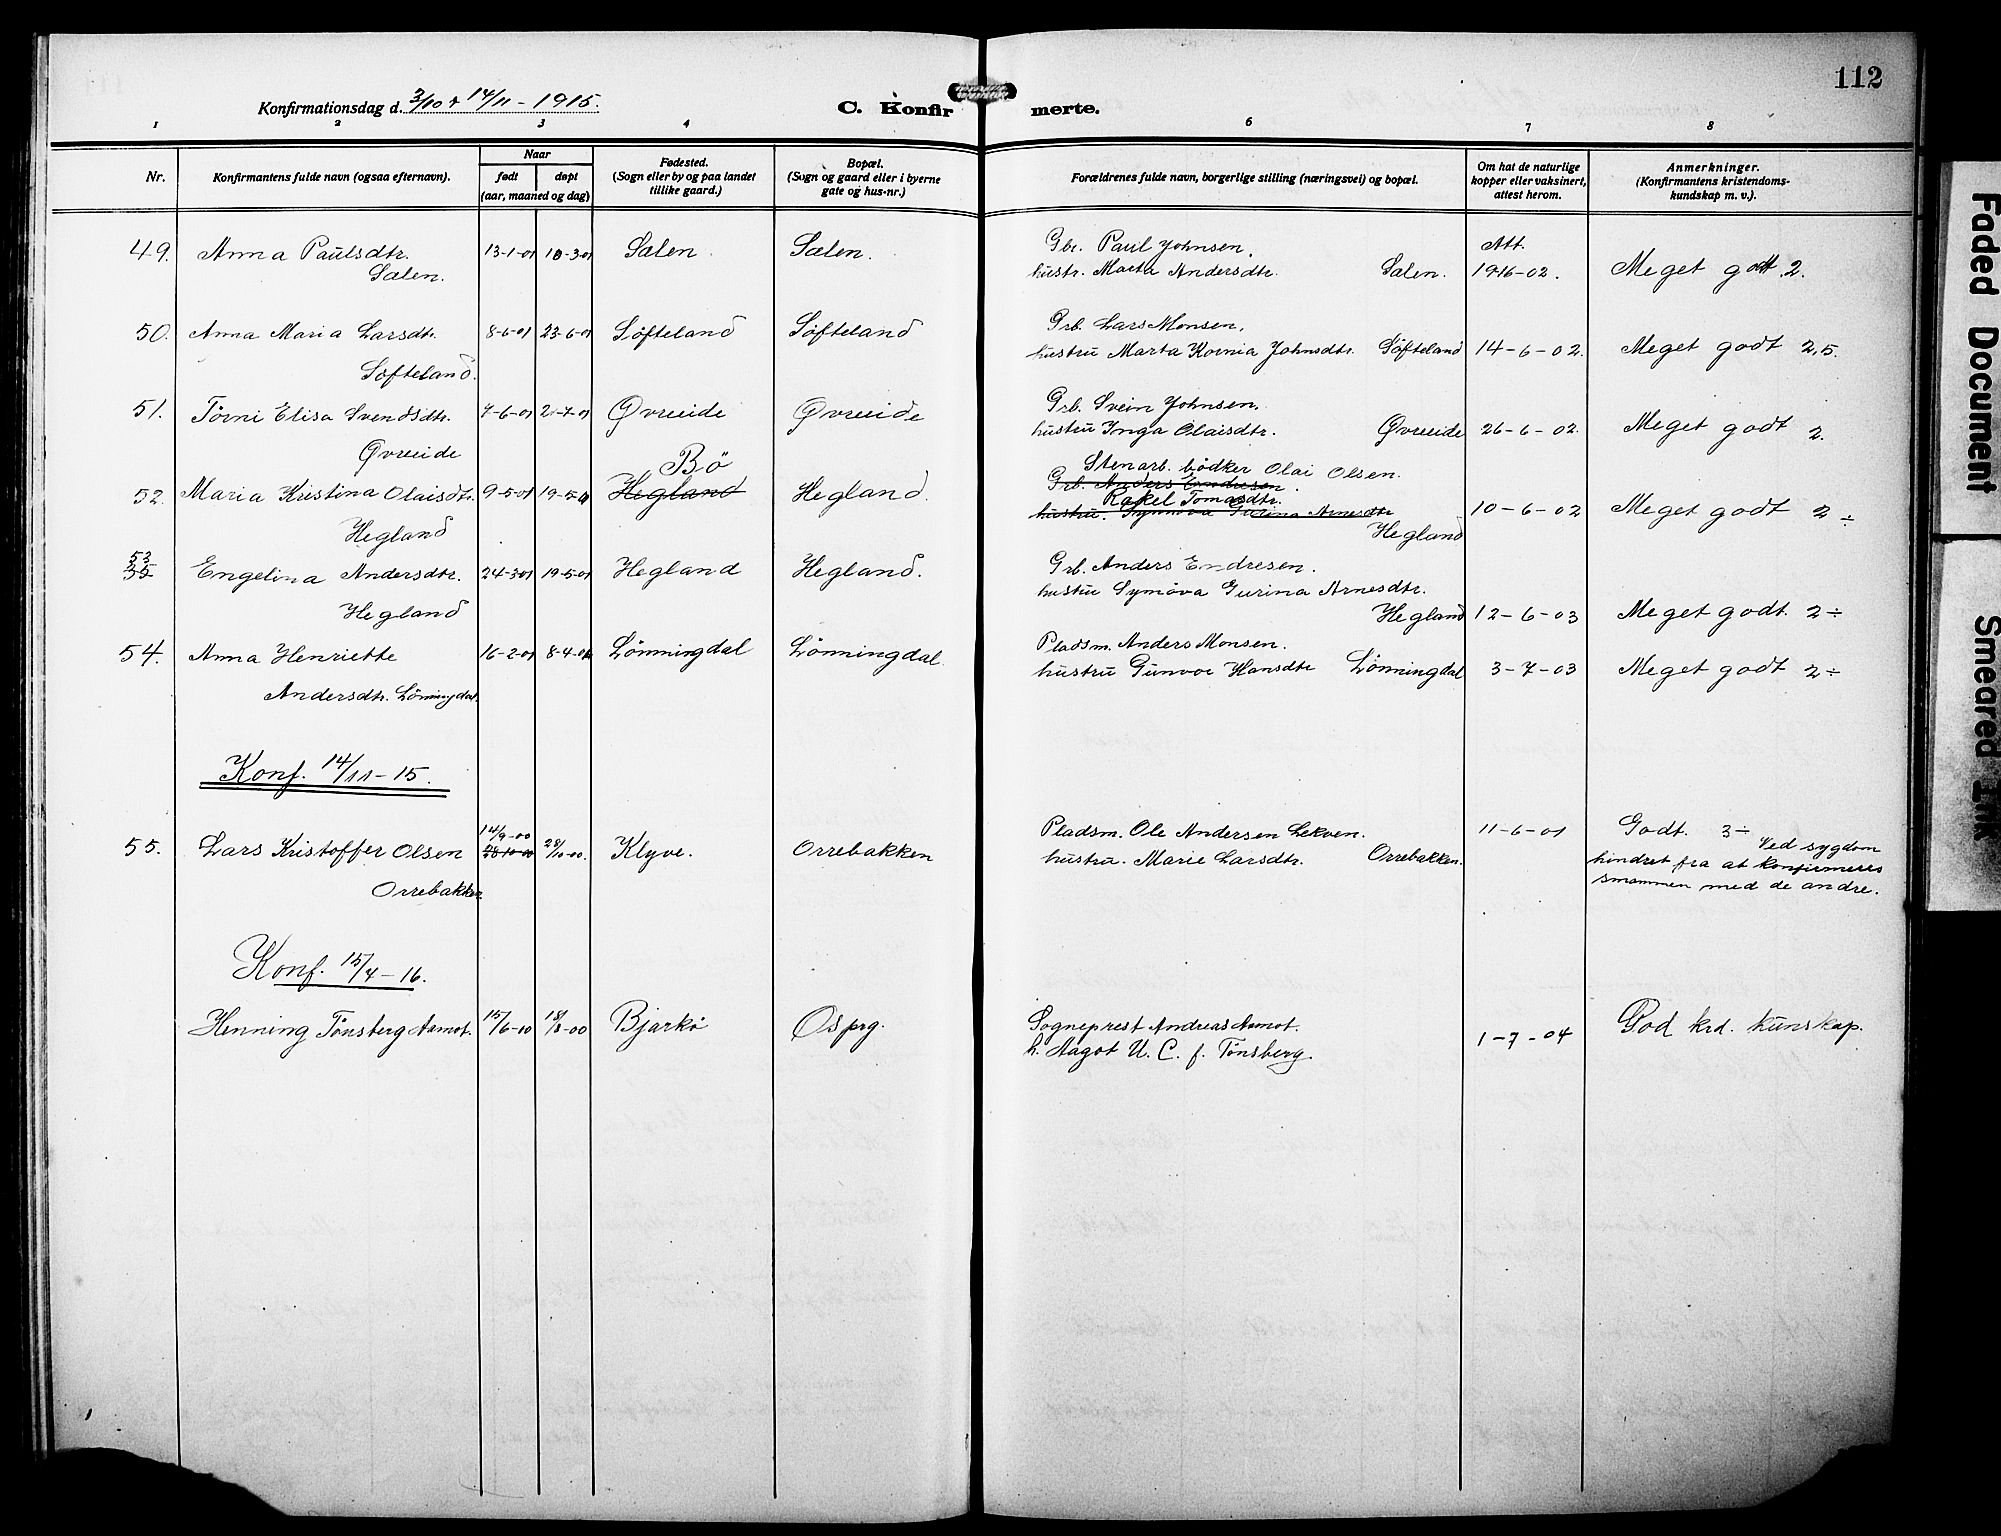 112
Konfirmationsdag d. 3/10 & 14/11 - 1915. C. Konfirmerte.
1 2 3 4 5 6 7 8
Nr. Konfirmantens fulde navn (ogsaa efternavn). Naar født døpt (aar, maaned og dag) Fødested. (Sogn eller by og paa landet tillike gaard.) Bopæl. (Sogn og gaard eller i byerne gate og hus-nr.) Forældrenes fulde navn, borgerlige stilling (næringsvei) og bopæl. Om hat de naturlige kopper eller vaksinert, attest herom. Anmerkninger. (Konfirmantens kristendoms-kundskap m. v.).
49. Anna Paulsdtr. 13-1-01 10-3-01 Sælen. Sælen. Gbr. Paul Johnsen. Att.
Sælen. hustr. Marta Andersdtr. Sælen. 19-16-02. Meget godt 2.
50. Anna Maria Larsdtr. 8-6-01 23-6-01 Søfteland Søfteland Grb. Lars Monsen.
Søfteland. hustru Marta Kornia Johnsdtr. Søfteland 14-6-02. Meget godt 2,5.
51. Tørni Elisa Svendsdtr. 7-6-01 21-7-01 Øvreeide Øvreeide Grb. Svein Johnsen.
Øvreeide hustru Inga Olaisdtr. Øvreeide 26-6-02. Meget godt 2.
Bø Stenarb. bødker Olai Olsen.
52. Maria Kristina Olaisdtr. 9-5-01 19-5-01 Hegland Hegland. Grb. Anders Endresen.
Rakel Tomasdtr.
hustru. Synnøva Gurina Arnesdtr 10-6-02 Meget godt 2 ÷
Hegland Hegland
53
55 Engelina Andersdtr. 24-3-01 19-5-01 Hegland Hegland. Grb. Anders Endresen.
hustru Symøva Gurina Arnesdtr.
Hegland Hegland 12-6-03 Meget godt. 2 ÷
54. Anna Henriette 16-2-01 8-4-01 Lønningdal Lønningdal. Pladsm. Anders Monsen.
Andersdtr. Lønningdal. hustru Gunvor Hansdtr Lønningdal 3-7-03 Meget godt 2 ÷
Konf. 14/11-15.
14/9-00
55. Lars Kristoffer Olsen 28-10-00 28/10-00. Klyve. Orrebakken Pladsm. Ole Andersen Lekven. 11-6-01 Godt. 3-
Orrebakken hustru. Marie Larsdtr. Orrebakken. Ved sygdom
hindret fra at konfirmeres
smammen med de andre.
Konf. 15/4-16.
Henning Tønsberg Aamot. 15/6-00 18/8-00 Bjarkø Os prg. Sogneprest Andreas Aamot. 1-7-04 God krd. kunskap.
h. Aagot U. C. f. Tønsberg.
Faded Document
Smeared Ink